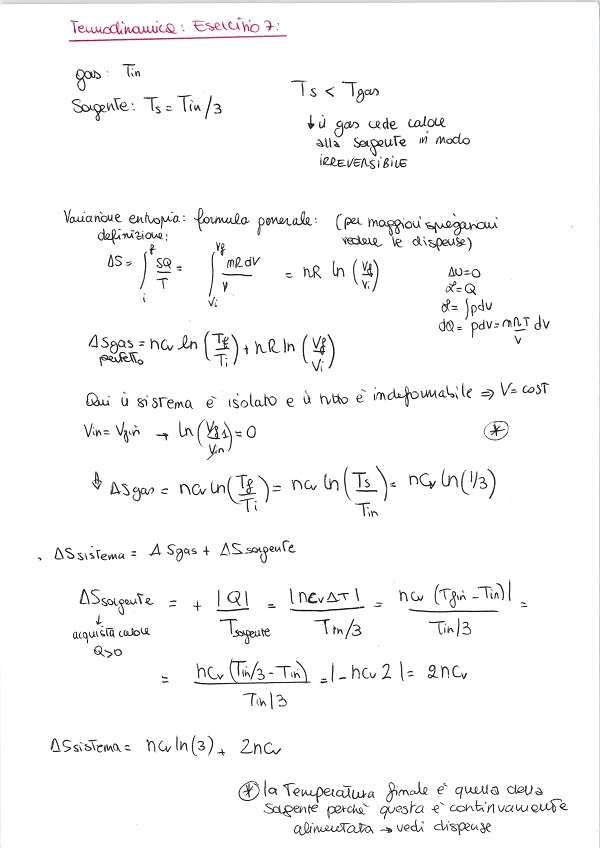 Termodinamica: Esercizio 7:
gas: Tin
Sorgente: Ts = Tin/3
Ts < Tgas
↓ il gas cede calore
alla sorgente in modo
IRREVERSIBILE
Variazione entropia: formula generale: (per maggiori spiegazioni
definizione: vedere le dispense)
ΔS = ∫_i^f δQ/T = ∫_Vi^Vf nRdV/V = nR ln (Vf/Vi)
ΔU=0
L=Q
L=∫pdv
dQ = pdv = nRT/V dV
ΔSgas = ncv ln (Tf/Ti) + nR ln (Vf/Vi)
perfetto
Qui il sistema è isolato e il tutto è indeformabile ⇒ V=cost
Vin = Vfin → ln (Vf/Vin) = 0 (*)
↓ ΔSgas = ncv ln (Tf/Ti) = ncv ln (Ts/Tin) = ncv ln (1/3)
. ΔSsistema = ΔSgas + ΔSsorgente
ΔSsorgente = + |Q|/Tsorgente = |ncvΔT|/Tin/3 = ncv (Tfin - Tin)|/Tin/3 =
↓
acquista calore
Q>0
= ncv (Tin/3 - Tin)/Tin/3 = |-ncv 2| = 2ncv
ΔSsistema = ncv ln(3) + 2ncv
(*) la Temperatura finale è quella della
sorgente perchè questa è continuamente
alimentata → vedi dispense